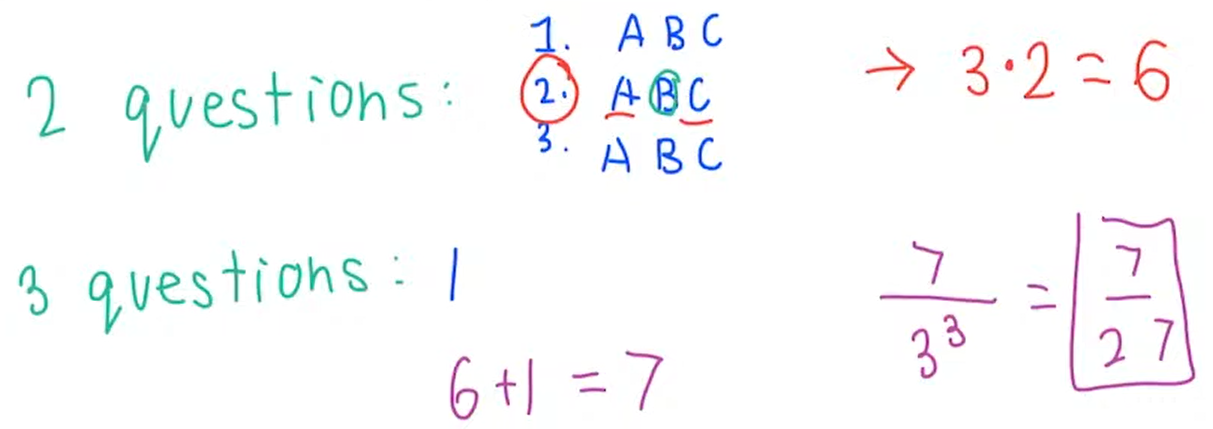 2 questions: 1. A B C
2. A B C
3. A B C
→ 3·2=6
3 questions: 1
6+1=7
7/3³ = 7/27